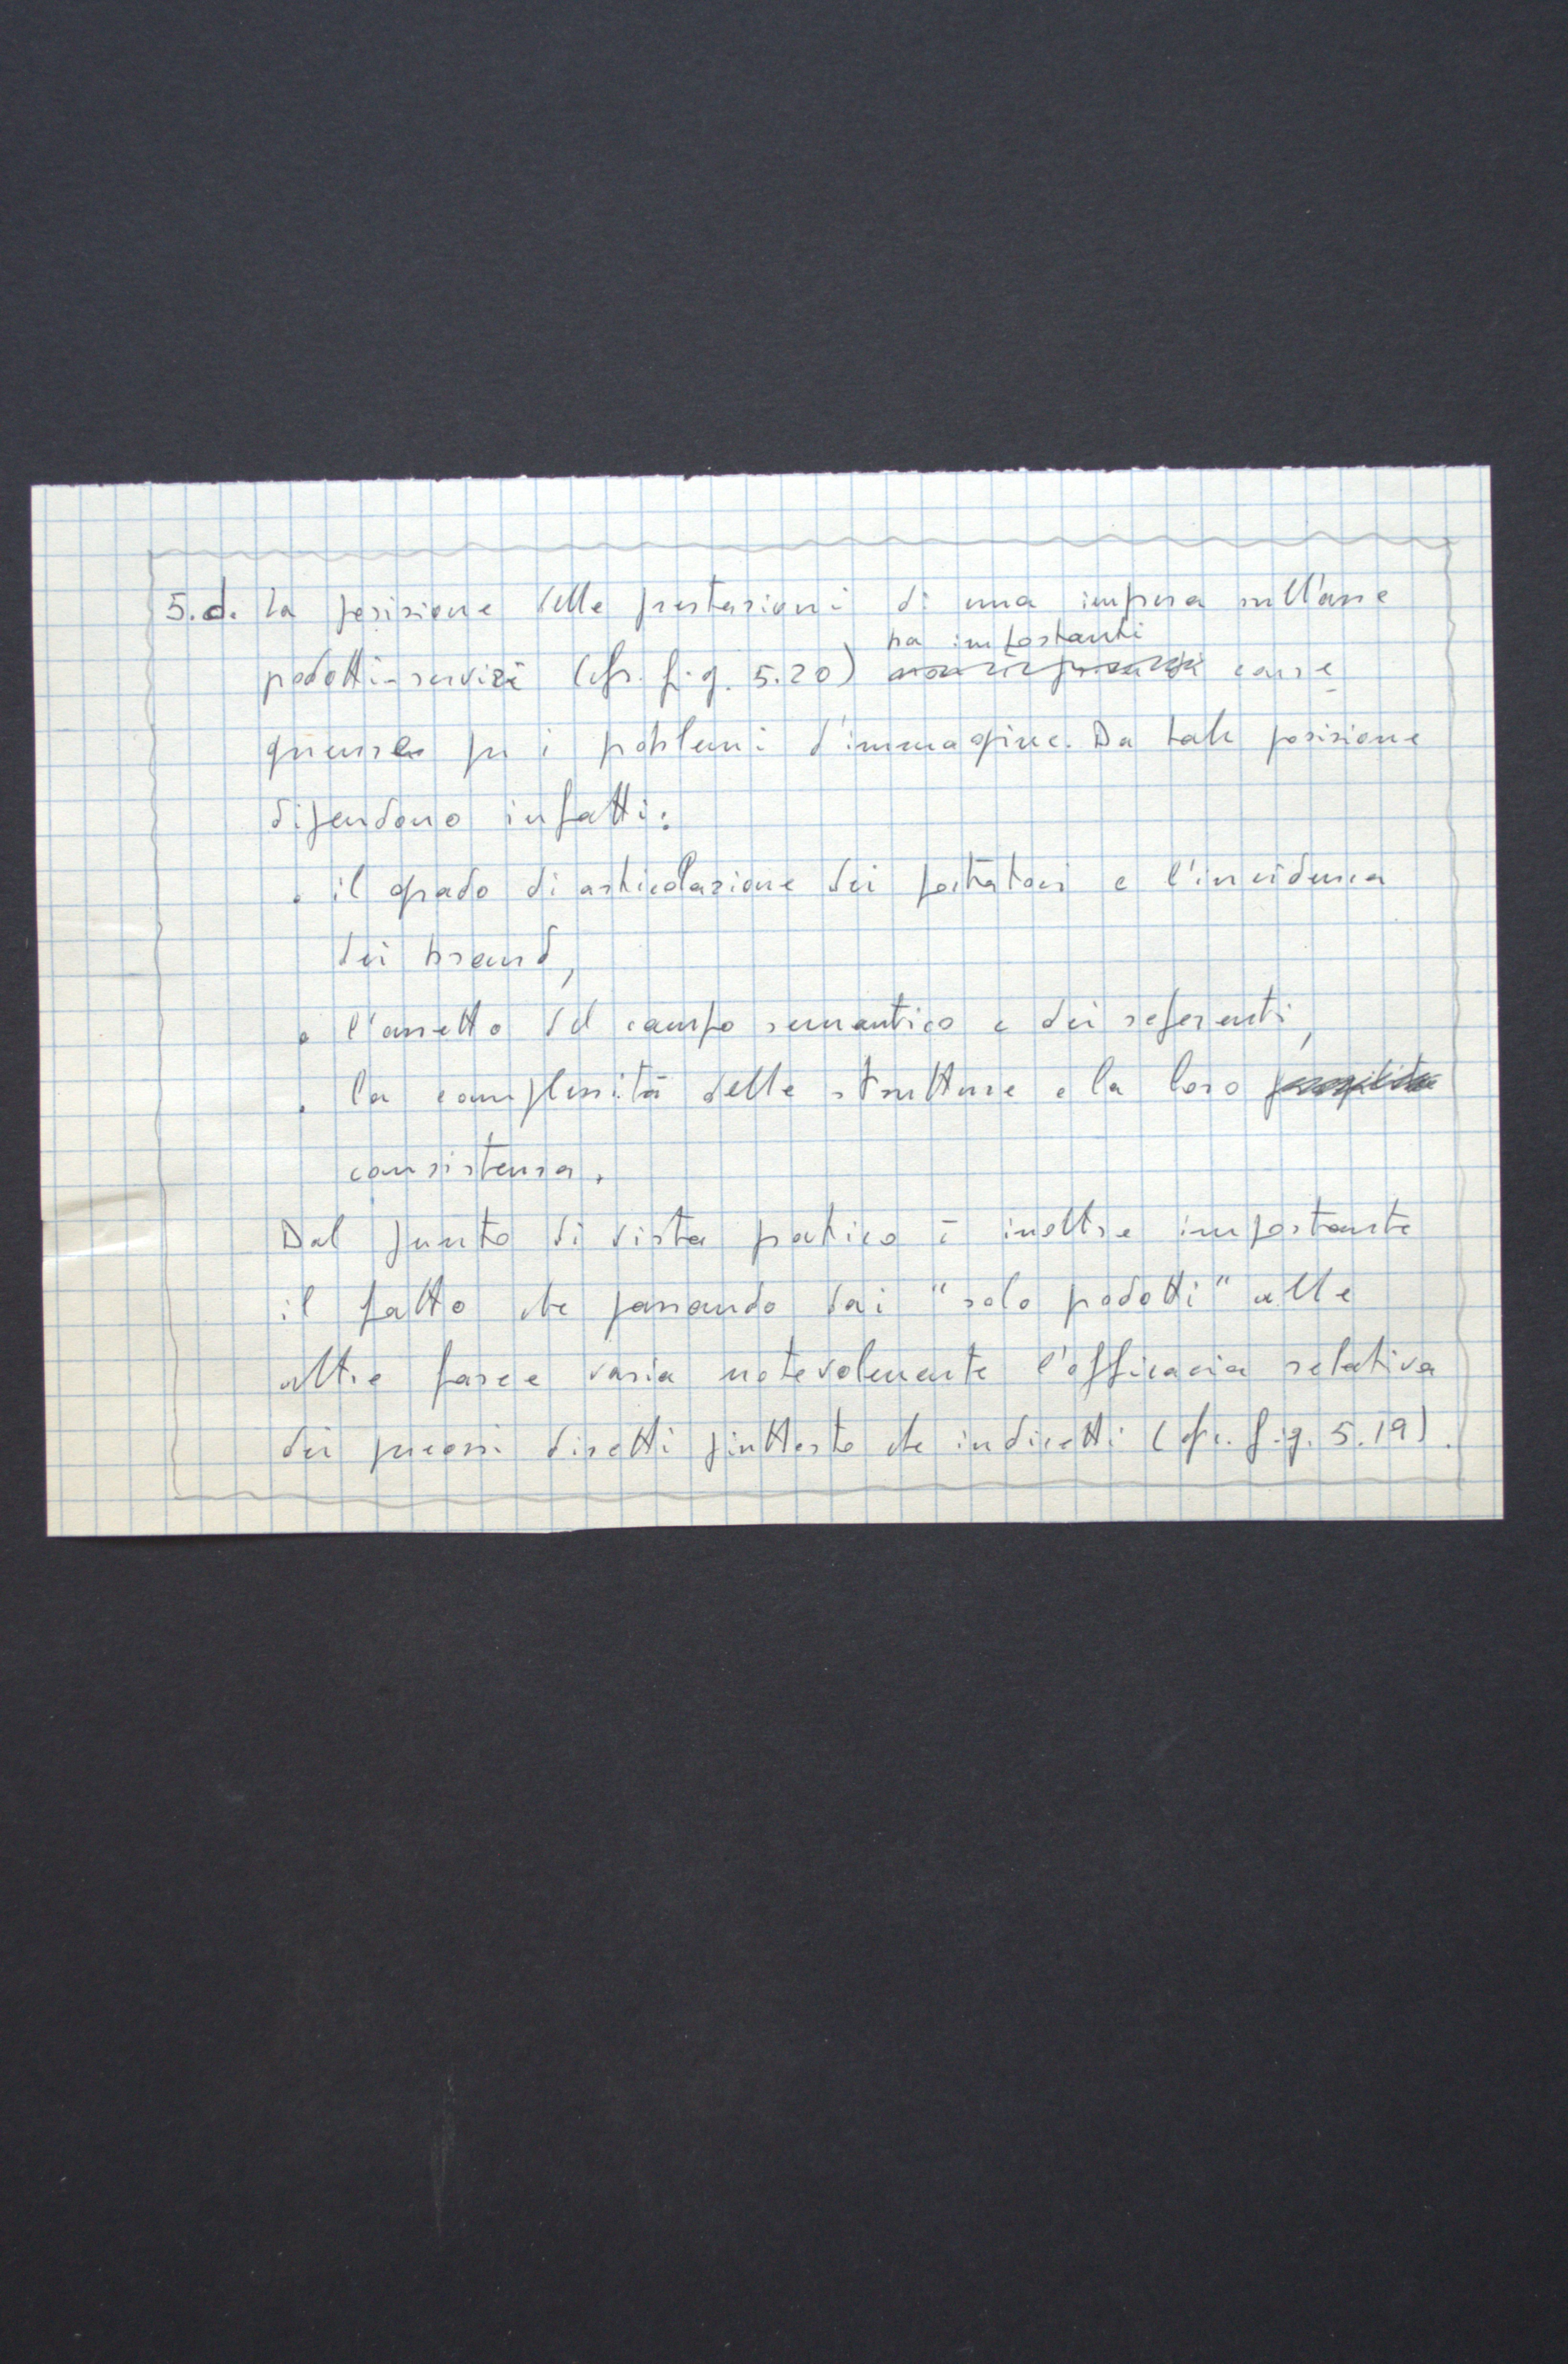 5.d. La posizione delle prestazioni di una impresa sull'asse
ha importanti
prodotti-servizi (cfr. fig. 5.20) conse
guenze per i problemi d'immagine. Da tale posizione
dipendono infatti:
. il grado di articolazione dei portatori e l'incidenza
dei brand,
. l'assetto del campo semantico e dei referenti,
. la complessità delle strutture e la loro
consistenza.
Dal punto di vista pratico è inoltre importante
il fatto che passando dai "solo prodotti" alle
altre fasce varia notevolmente l'efficacia relativa
dei processi diretti piuttosto che indiretti (cfr. fig. 5.19).